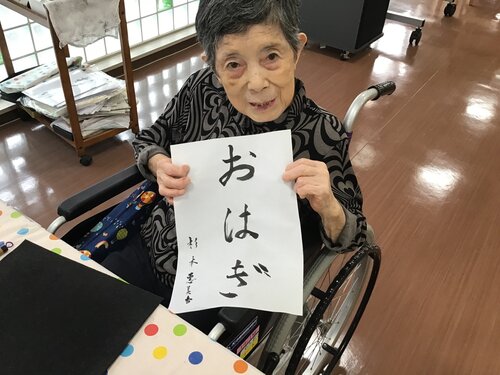 おはぎ